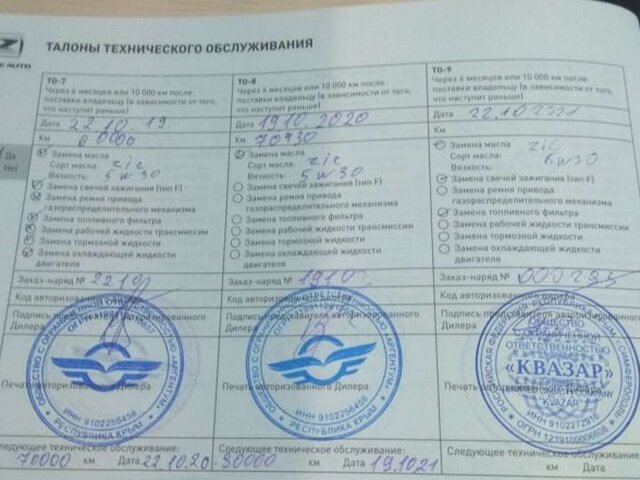 Z
E AUTO
ТАЛОНЫ ТЕХНИЧЕСКОГО ОБСЛУЖИВАНИЯ
Да
Нет
ТО-7
Через 6 месяцев или 10 000 км после
поставки владельцу (в зависимости от того,
что наступит раньше)
Дата 22.10.19
Км 60000
Замена масла
Сорт масла: zic
Вязкость: 5w30
Замена свечей зажигания (тип F)
Замена ремня привода
газораспределительного механизма
Замена топливного фильтра
Замена рабочей жидкости трансмиссии
Замена тормозной жидкости
Замена охлаждающей жидкости
двигателя
Заказ-наряд №
Код авторизованного
Подпись
Дилера
Печать авторизованного Дилера
ОБЩЕСТВО С ОГРАНИЧЕННОЙ ОТВЕТСТВЕННОСТЬЮ "АРГЕНТУМ"
ИНН 9102256456
РЕСПУБЛИКА КРЫМ
Следующее техническое обслуживание:
70000 км Дата 22.10.20
ТО-8
Через 6 месяцев или 10 000 км после
поставки владельцу (в зависимости от того,
что наступит раньше)
Дата 19.10.2020
Км 70430
Замена масла
Сорт масла: zic
Вязкость: 5w30
Замена свечей зажигания (тип F)
Замена ремня привода
газораспределительного механизма
Замена топливного фильтра
Замена рабочей жидкости трансмиссии
Замена тормозной жидкости
Замена охлаждающей жидкости
двигателя
Заказ-наряд №
Код авторизованного
Подпись представителя авторизованного
Дилера
Печать авторизованного Дилера
"АРГЕНТУМ"
ИНН 9102256456
РЕСПУБЛИКА КРЫМ
Следующее техническое обслуживание:
80000 км Дата 19.10.21
ТО-9
Через 6 месяцев или 10 000 км после
поставки владельцу (в зависимости от того,
что наступит раньше)
Дата
Км
Замена масла
Сорт масла: zic
Вязкость:
Замена свечей зажигания (тип F)
Замена ремня привода
газораспределительного механизма
Замена топливного фильтра
Замена рабочей жидкости трансмиссии
Замена тормозной жидкости
Замена охлаждающей жидкости
двигателя
Заказ-наряд №
Код авторизованного
Подпись представителя
Дилера
Печать авторизованного
ОБЩЕСТВО
С ОГРАНИЧЕННОЙ
ОТВЕТСТВЕННОСТЬЮ
«КВАЗАР»
LIMITED LIABILITY COMPANY
"KVAZAR"
Следующее техническое обслуживание:
км Дата